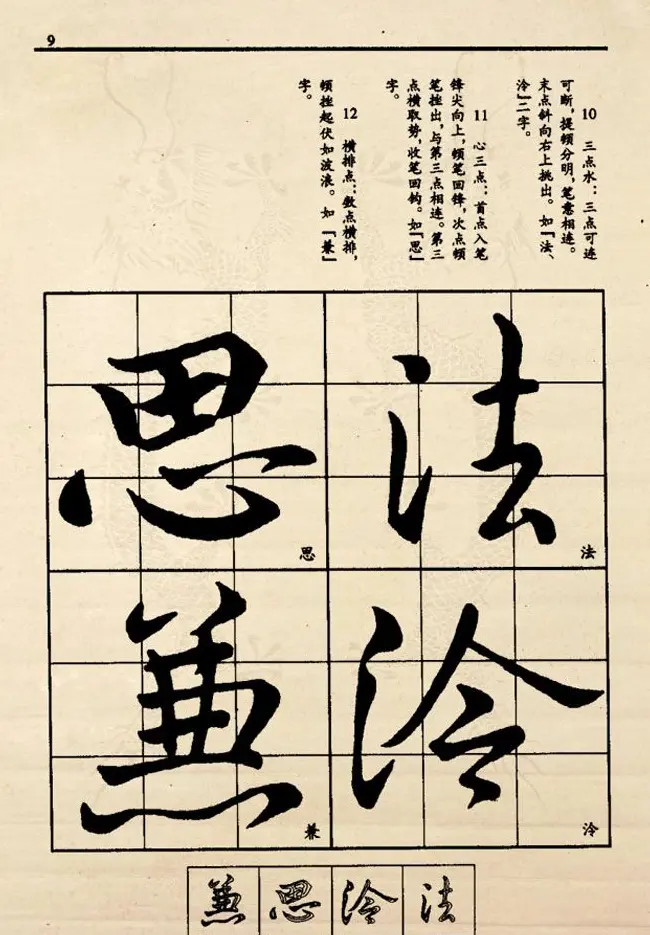 9
10 三点水：三点可连
可断，提顿分明，笔意相连。
末点斜向右上挑出。如『法、
泠』二字。
11 心三点：首点入笔
锋尖向上，顿笔回锋，次点顿
笔挫出，与第三点相连。第三
点横取势，收笔回钩。如『思』
字。
12 横排点：数点横排，
顿挫起伏如波浪。如『兼』
字。
法
法
思
思
泠
泠
兼
兼
兼 思 泠 法